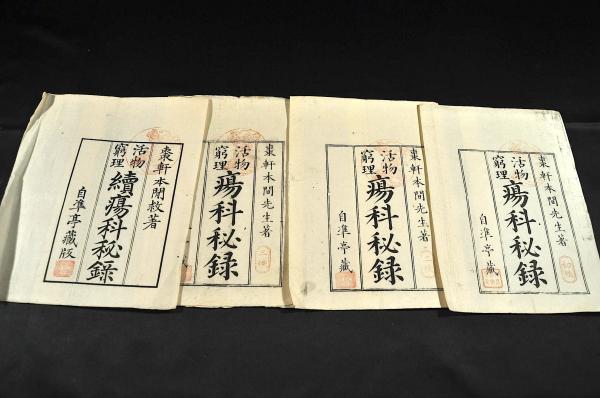 棗軒本間先生著
活物
窮理
瘍科秘録
自準亭藏
棗軒本間先生著
活物
窮理
瘍科秘録
自準亭藏
棗軒本間先生著
活物
窮理
瘍科秘録
棗軒本間救著
活物
窮理
續瘍科秘録
自準亭藏版